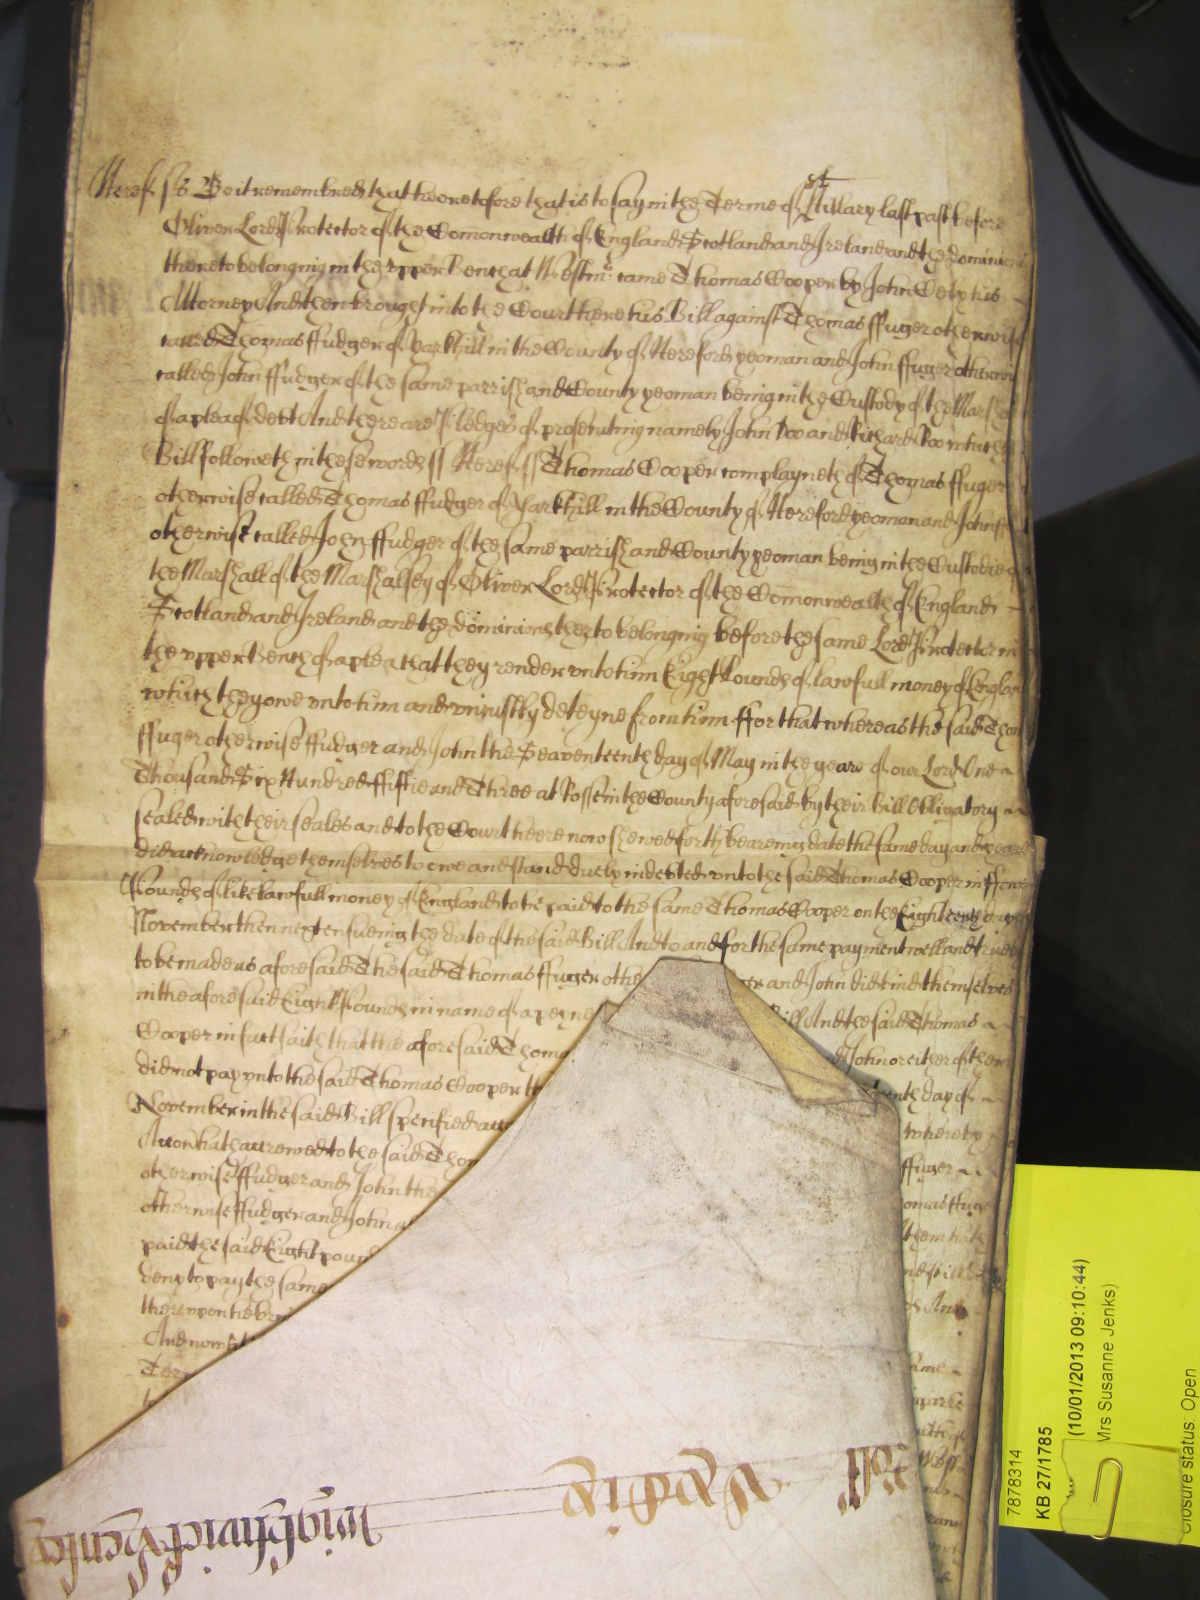 Heref ss Be it remembred that heretofore that is to say in the Terme of St Hillary last past before
Oliver Lord Protector of the Comonwealth of England Scotland and Ireland and the dominions
thereto belonging in the upper Bench at Westmr came Thomas Cooper by John Wely his
Attorney And then brought into the Court here his Bill against Thomas ffuger otherwise
called Thomas ffudger of Yarkhill in the County of Hereford yeoman and John ffuger otherwise
called John ffudger of the same parrish and County yeoman being in the Custody of the Marshall
of a plea of debt And there are Pledges of prosecuting namely John Doo and Richard Roo which
Bill followeth in these words ss Heref ss Thomas Cooper complayneth of Thomas ffuger
otherwise called Thomas ffudger of Yarkhill in the County of Hereford yeoman and John
otherwise called John ffudger of the same parrish and County yeoman being in the Custodie of
the Marshall of the Marshalsey of Oliver Lord Protector of the Comonwealth of England
Scotland and Ireland and the dominions therto belonging before the same Lord Protector in
the upper Bench of a plea that they render unto him Eight Pounds of lawfull money of England
which they owe unto him and uniustly deteyne from him ffor that whereas the said Thom
ffuger otherwise ffudger and John the Seaventeenth day of May in the yeare of our Lord One
Thousand Six Hundred ffiftie and Three at Rosse in the County aforesaid by their Bill Obligatory
sealed with their seales and to the Court heere now shewed forth beareing date the same day and yeare
did acknowledge themselves to owe and stand duely indebted unto the said Thomas Cooper in ffower
Pounds of like lawfull money of England to be paid to the same Thomas Cooper on the Eighteenth day of
November then next ensueing the date of the said Bill And to and for the same payment well and truely
to be made as aforesaid The said Thomas ffuger othe ger and John did bind themselves
in the aforesaid Eight Pounds in name of a peyne Bill And the said Thomas
Cooper in fact saith that the aforesaid Thoma d John or either of them
did not pay unto the said Thomas Cooper th enth day of
November in the said Bill specified whereby
Accon hath accrewed to the said Thom ffuger
otherwise ffudger and John the omas ffuge
otherwise ffudger and John a them hath
paid the said Eight poun nd still
deny to pay the same And
thereupon he bri
And now at
Ter
Roll
wightwick
7878314
KB 27/1785
(10/01/2013 09:10:44)
Mrs Susanne Jenks)
Closure status: Open